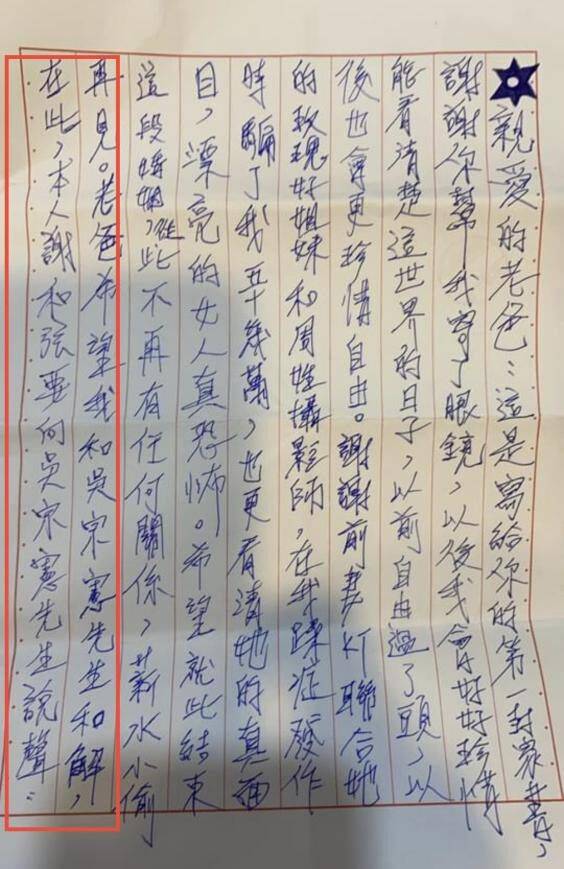 親愛的老爸：這是寫給你的第一封家書，
謝謝你幫我寄了眼鏡，以後我會好好珍惜
能看清楚這世界的日子，以前自由過了頭，以
後也會更珍惜自由。謝謝前妻灯聯合她
的玫瑰好姐妹和周姓攝影師，在我躁症發作
時騙了我五十幾萬，也更看清她的真面
目，漂亮的女人真恐怖。希望就此結束
這段婚姻，從此不再有任何關係，薪水小偷
再見。老爸希望我和吳宗憲先生和解，
在此，本人謝和弦要向吳宗憲先生說聲：